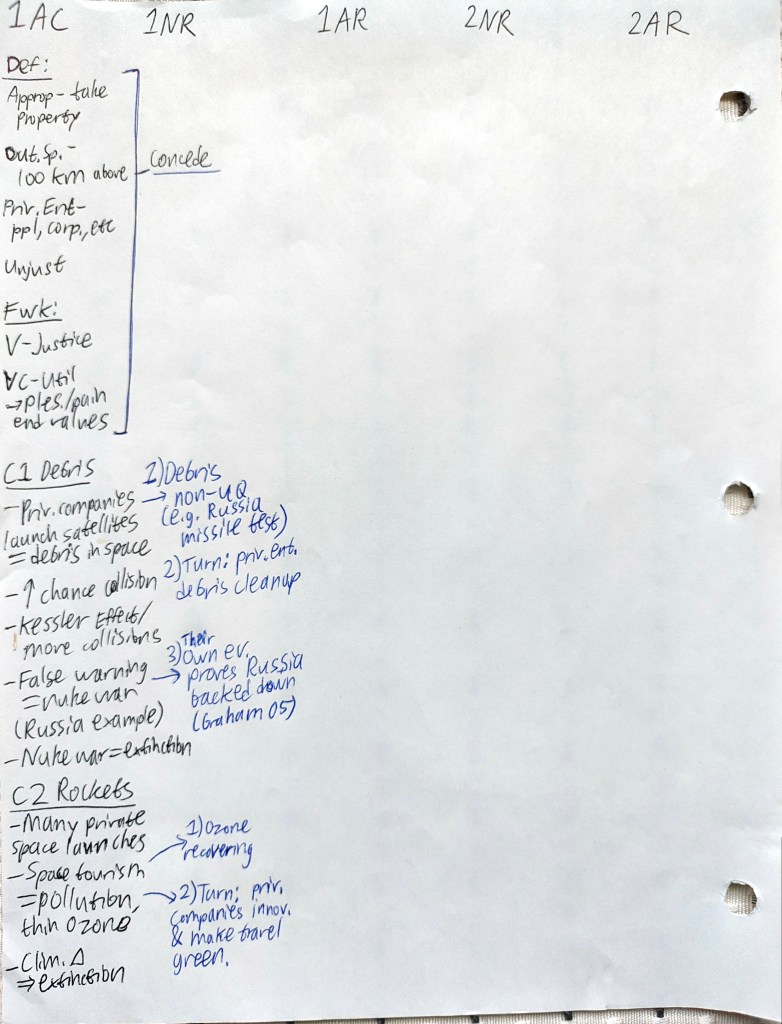 1AC 1NR 1AR 2NR 2AR
Def:
Approp - take
Property
Out. Sp. -
100 km above
Priv. Ent -
ppl, corp., etc
Unjust
Fwk:
V - Justice
VC - Util
→ ples./pain
end values
Concede
C1 Debris
- Priv. companies
launch satellites
= debris in space
- ↑ chance collision
- Kessler Effect/
more collisions
- False warning
= nuke war
(Russia example)
- Nuke war = extinction
1) Debris
non-UQ
(e.g. Russia
missile test)
2) Turn: priv. ent.
debris cleanup
3) Their
own ev.
proves Russia
backed down
(Graham 05)
C2 Rockets
- Many private
space launches
- Space tourism
= pollution,
thin ozone
- Clim. Δ
⇒ extinction
1) Ozone
recovering
2) Turn: priv.
companies innov.
& make travel
green.